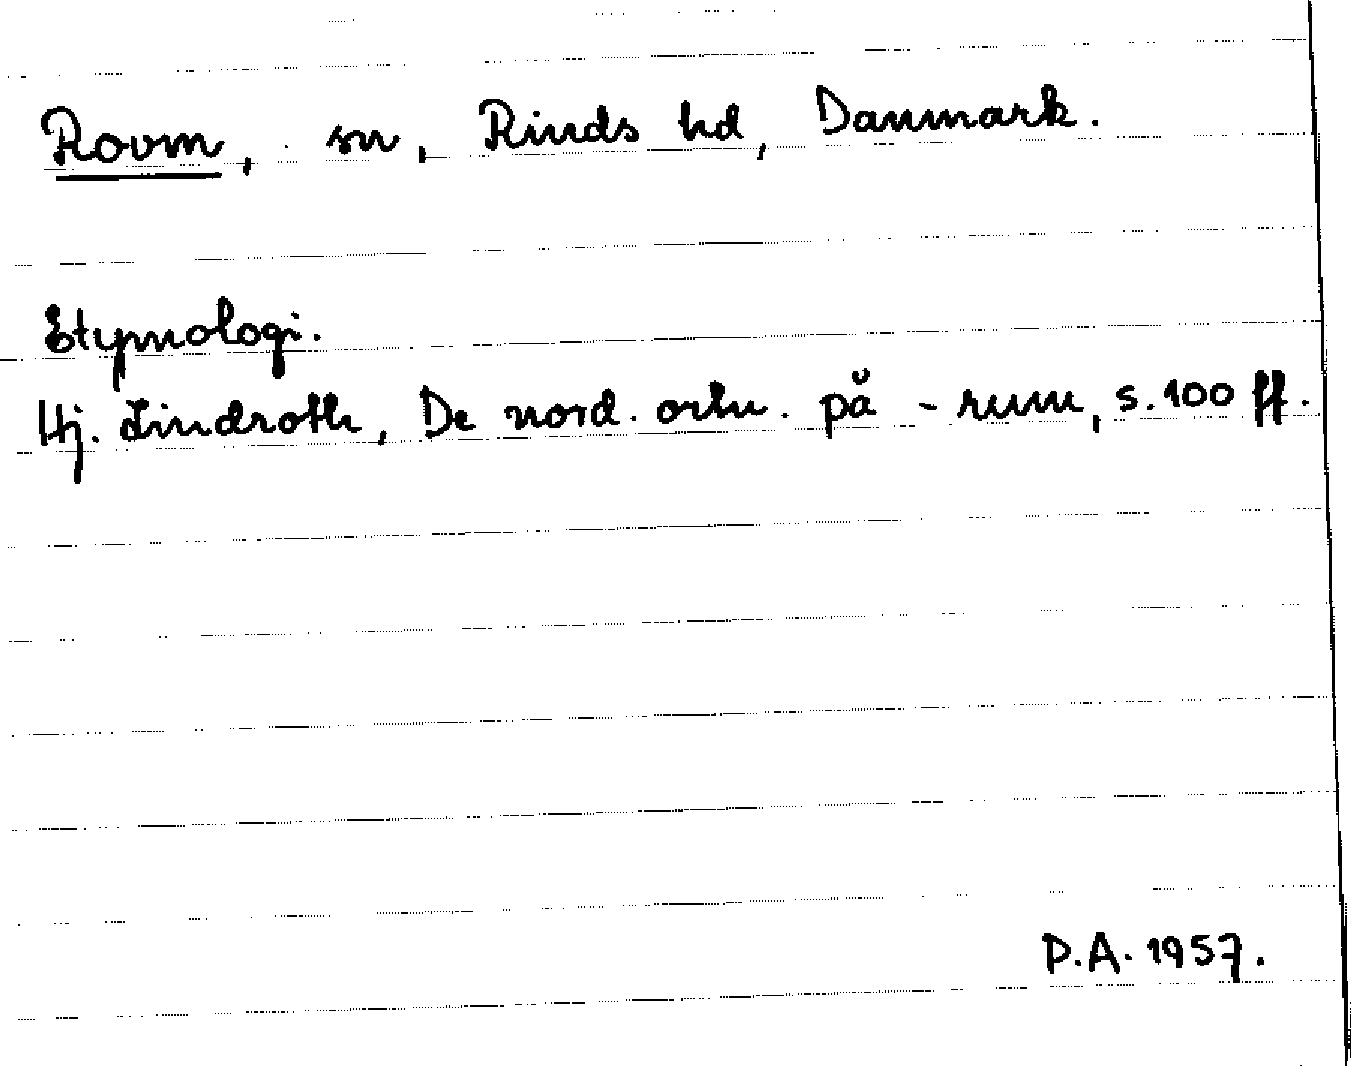 Rovm, sn, Rinds hd, Danmark.
Etymologi.
Hj. Lindroth, De nord. ortn. på -rum, s. 100 ff.
P.A. 1957.